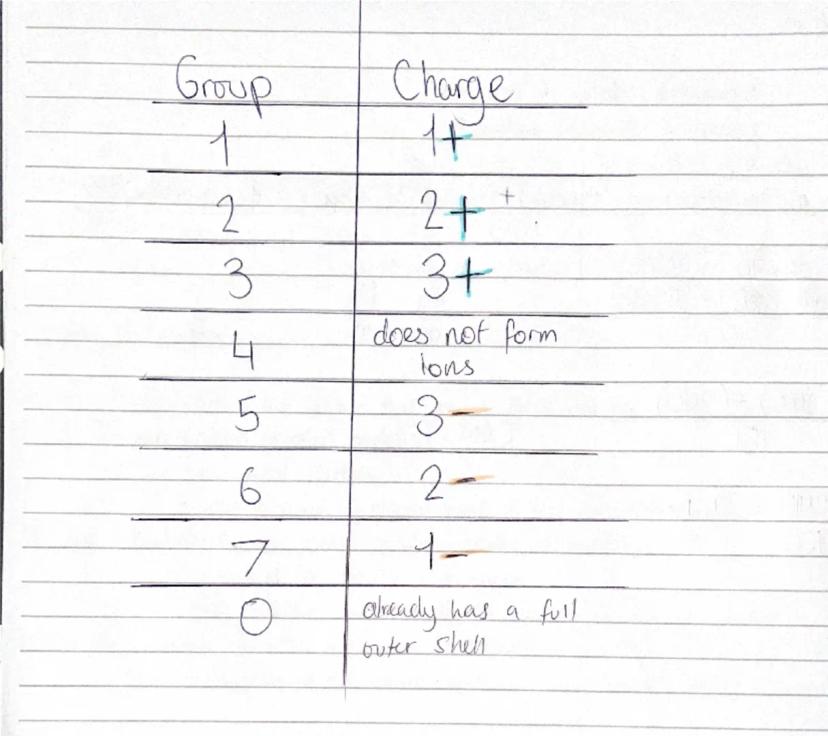 Group Charge
1 1+
2 2+ +
3 3+
4 does not form
ions
5 3-
6 2-
7 1-
0 already has a full
outer shell